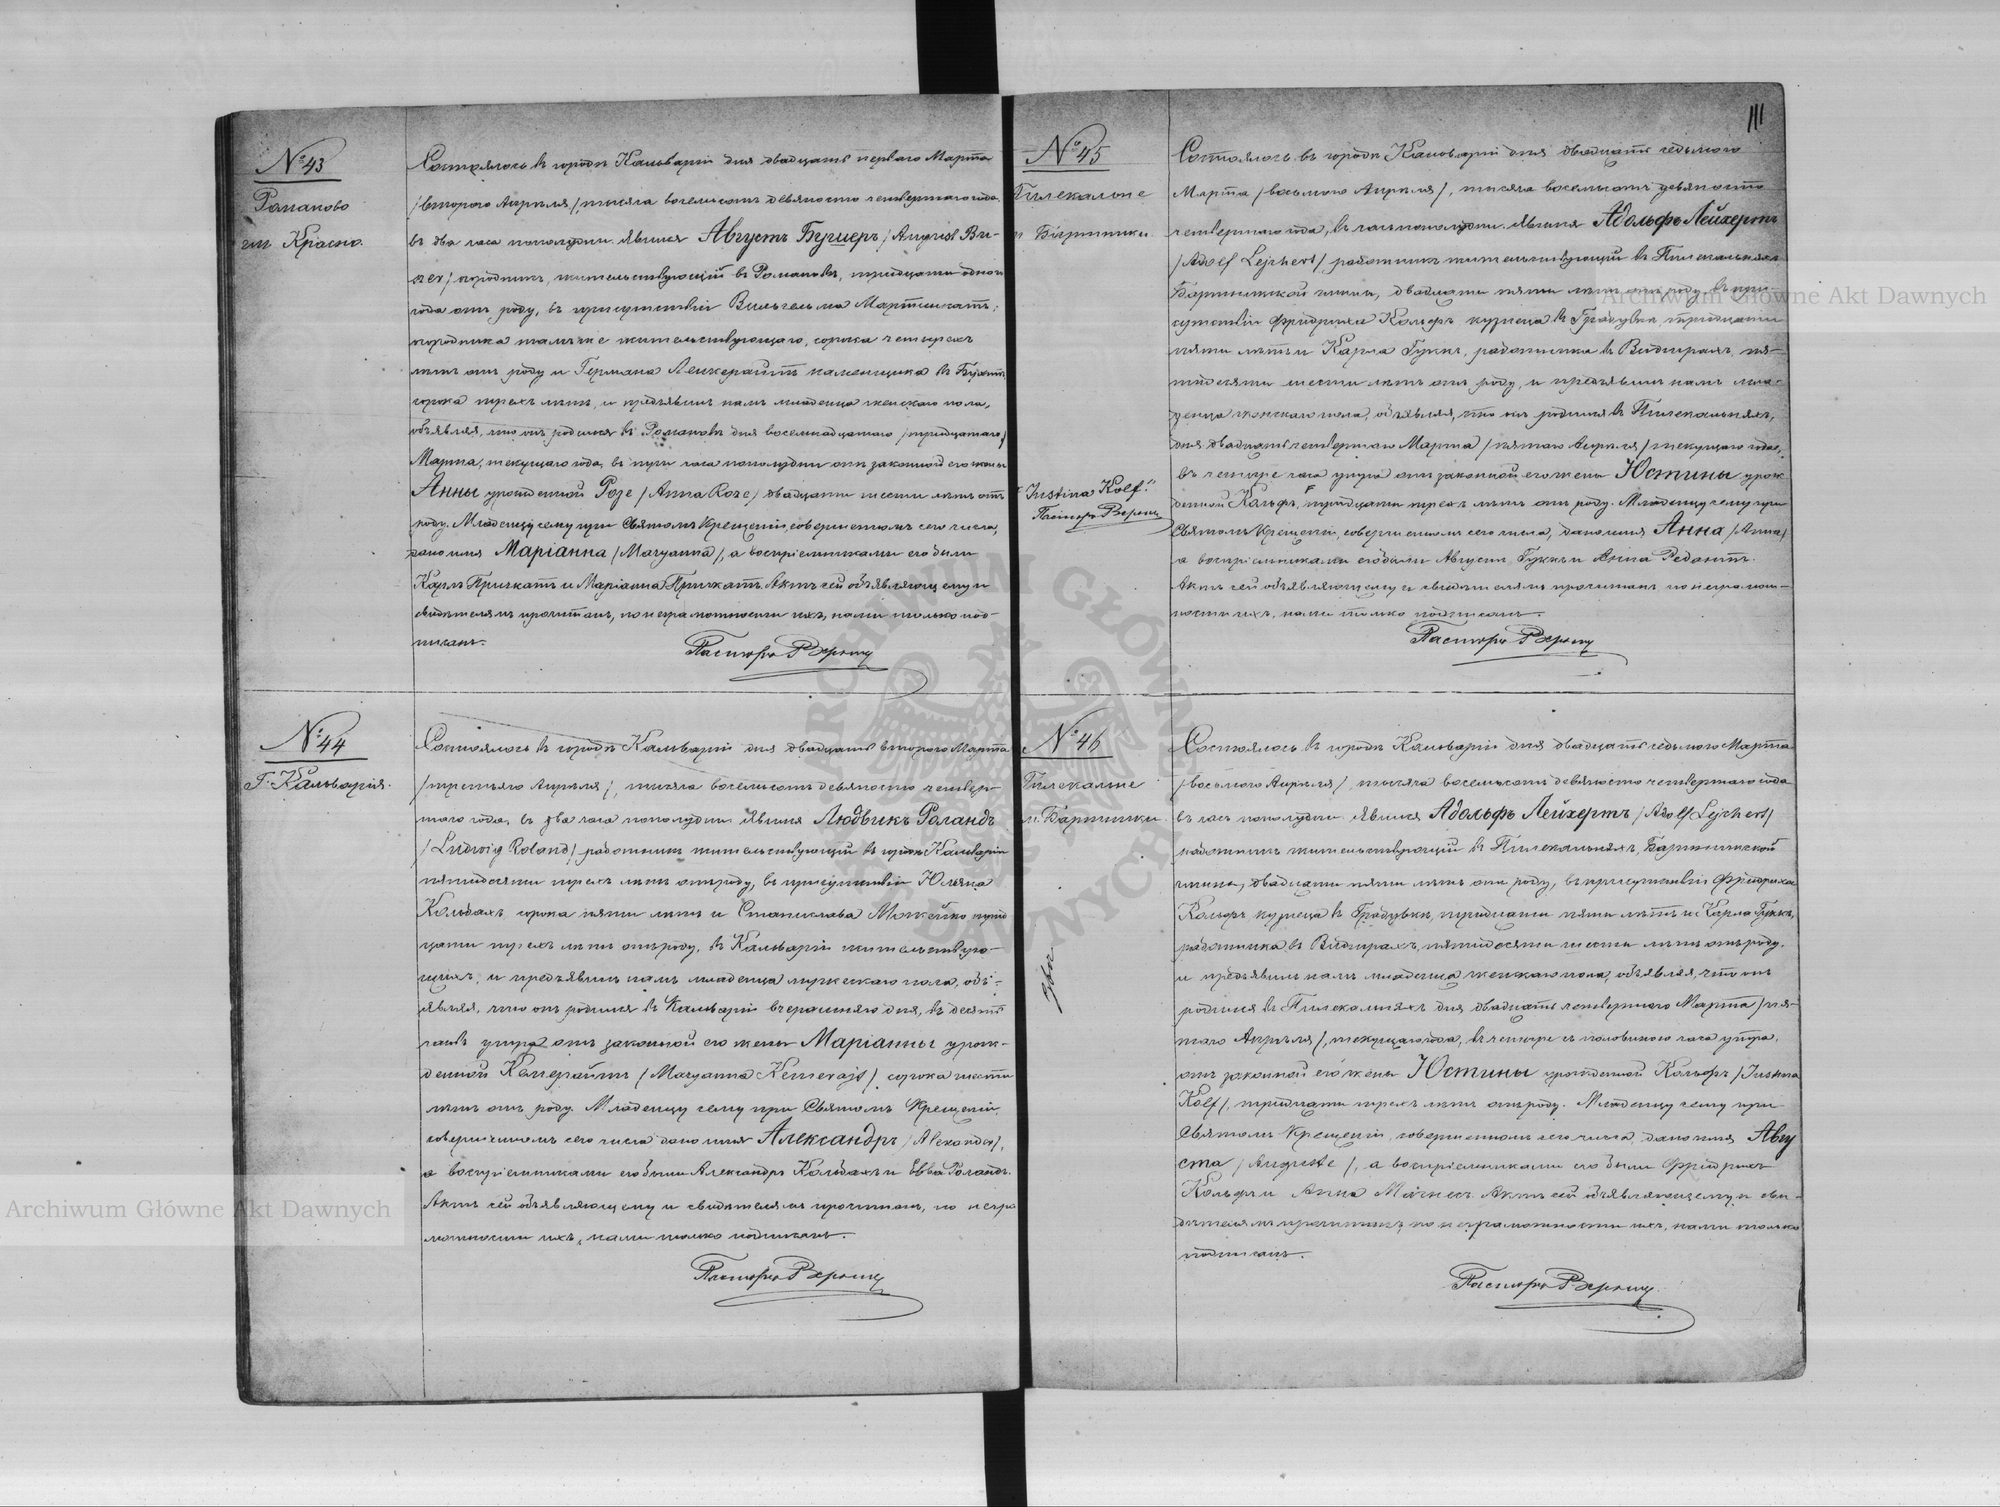 № 43
Романово
гм. Красно.
Состоялось въ городѣ Кальваріи дня двадцать перваго Марта
/втораго Апрѣля/, тысяча восемьсотъ девяносто четвертаго года
въ два часа пополудни. Явился Августъ Бушеръ /August Bu-
szer/ городникъ, жительствующій въ Романовѣ, тридцати одного
года отъ роду, въ присутствіи Вильгельма
городника тамъ же жительствующаго, сорока четырехъ
лѣтъ отъ роду и Германа каменщика въ
сорока трехъ лѣтъ, и предъявилъ намъ младенца женскаго пола,
объявляя, что онъ родился въ Романовѣ дня восемнадцатаго /тридцатаго/
Марта, текущаго года, въ пути часа пополудни отъ законной его жены
Анны урожденной Розе /Anna Roze/ двадцати шести лѣтъ отъ
роду. Младенцу сему при Святомъ Крещеніи, совершенномъ сего числа,
дано имя Маріанна /Maryanna/, а воспріемниками его были
Карлъ и Маріанна Актъ сей объявляющему и
свидѣтелямъ прочитанъ, по неграмотности ихъ, нами только под-
писанъ.
Пасторъ
№ 44
Г. Кальварія.
Состоялось въ городѣ Кальваріи дня двадцать втораго Марта
/третьяго Апрѣля/, тысяча восемьсотъ девяносто четвер-
таго года, въ два часа пополудни. Явился Людвикъ Роландъ
/Ludwig Roland/ работникъ жительствующій въ городѣ Кальваріи
пятидесяти трехъ лѣтъ отъ роду, въ присутствіи Юльяна
Кольбахъ, сорока пяти лѣтъ и Станислава Можейко, трид-
цати трехъ лѣтъ отъ роду, въ Кальваріи жительствую-
щихъ, и предъявилъ намъ младенца мужескаго пола, объ-
являя, что онъ родился въ Кальваріи вчерашняго дня, въ десять
часовъ утра отъ законной его жены Маріанны урож-
денной Кемерайтъ /Maryanna Kemerajt/ сорока шести
лѣтъ отъ роду. Младенцу сему при Святомъ Крещеніи,
совершенномъ сего числа дано имя Александръ /Alexander/,
а воспріемниками его были Александръ Кольбахъ и Евва Роландъ.
Актъ сей объявляющему и свидѣтелямъ прочитанъ, по негра-
мотности ихъ, нами только подписанъ.
Пасторъ
111
№ 45
Пилекальне
и Бартники
"Justina Kolf"
Пасторъ
Состоялось въ городѣ Кальваріи дня двадцать седьмого
Марта /восьмого Апрѣля/, тысяча восемьсотъ девяносто
четвертаго года, въ часъ пополудни. Явился Адольфъ Лейхертъ
/Adolf Lejchert/ работникъ жительствующій въ Пилекальняхъ
Бартникской гмины, двадцати пяти лѣтъ отъ роду, въ при-
сутствіи Фридриха Кольфъ кузнеца въ Градувкѣ, тридцати
пяти лѣтъ и Карла Гукъ, работника въ Видгирахъ, пя-
тидесяти шести лѣтъ отъ роду, и предъявилъ намъ мла-
денца женскаго пола, объявляя, что онъ родился въ Пилекальняхъ,
дня двадцать четвертаго Марта /пятаго Апрѣля/ текущаго года,
въ четыре часа утра отъ законной его жены Юстины урож-
денной Кольфъ, тридцати трехъ лѣтъ отъ роду. Младенцу сему при
Святомъ Крещеніи, совершенномъ сего числа, дано имя Анна /Anna/
а воспріемниками его были Августъ Гукъ и Анна Редантъ.
Актъ сей объявляющему и свидѣтелямъ прочитанъ по неграмот-
ности ихъ, нами только подписанъ.
Пасторъ
№ 46
Пилекальне
и. Бартники
Состоялось въ городѣ Кальваріи дня двадцать седьмого Марта
/восьмого Апрѣля/, тысяча восемьсотъ девяносто четвертаго года
въ часъ пополудни. Явился Адольфъ Лейхертъ /Adolf Lejchert/
работникъ жительствующій въ Пилекальняхъ, Бартникской
гмины, двадцати пяти лѣтъ отъ роду, въ присутствіи Фридриха
Кольфъ кузнеца въ Градувкѣ, тридцати пяти лѣтъ и Карла Гукъ,
работника въ Видгирахъ, пятидесяти шести лѣтъ отъ роду,
и предъявилъ намъ младенца женскаго пола, объявляя, что онъ
родился въ Пилекальняхъ дня двадцать четвертаго Марта /пя-
таго Апрѣля/, текущаго года, въ четыре съ половиною часа утра,
отъ законной его жены Юстины урожденной Кольфъ /Justina
Kolf/, тридцати трехъ лѣтъ отъ роду. Младенцу сему при
Святомъ Крещеніи, совершенномъ сего числа, дано имя Авгу
ста /Auguste/, а воспріемниками его были Фридрихъ
Кольфъ и Анна Актъ сей объявляющему и сви-
дѣтелямъ прочитанъ, по неграмотности ихъ, нами только
подписанъ.
Пасторъ
Archiwum Główne Akt Dawnych
Archiwum Główne Akt Dawnych
ARCHIWUM GŁÓWNE AKT DAWNYCH